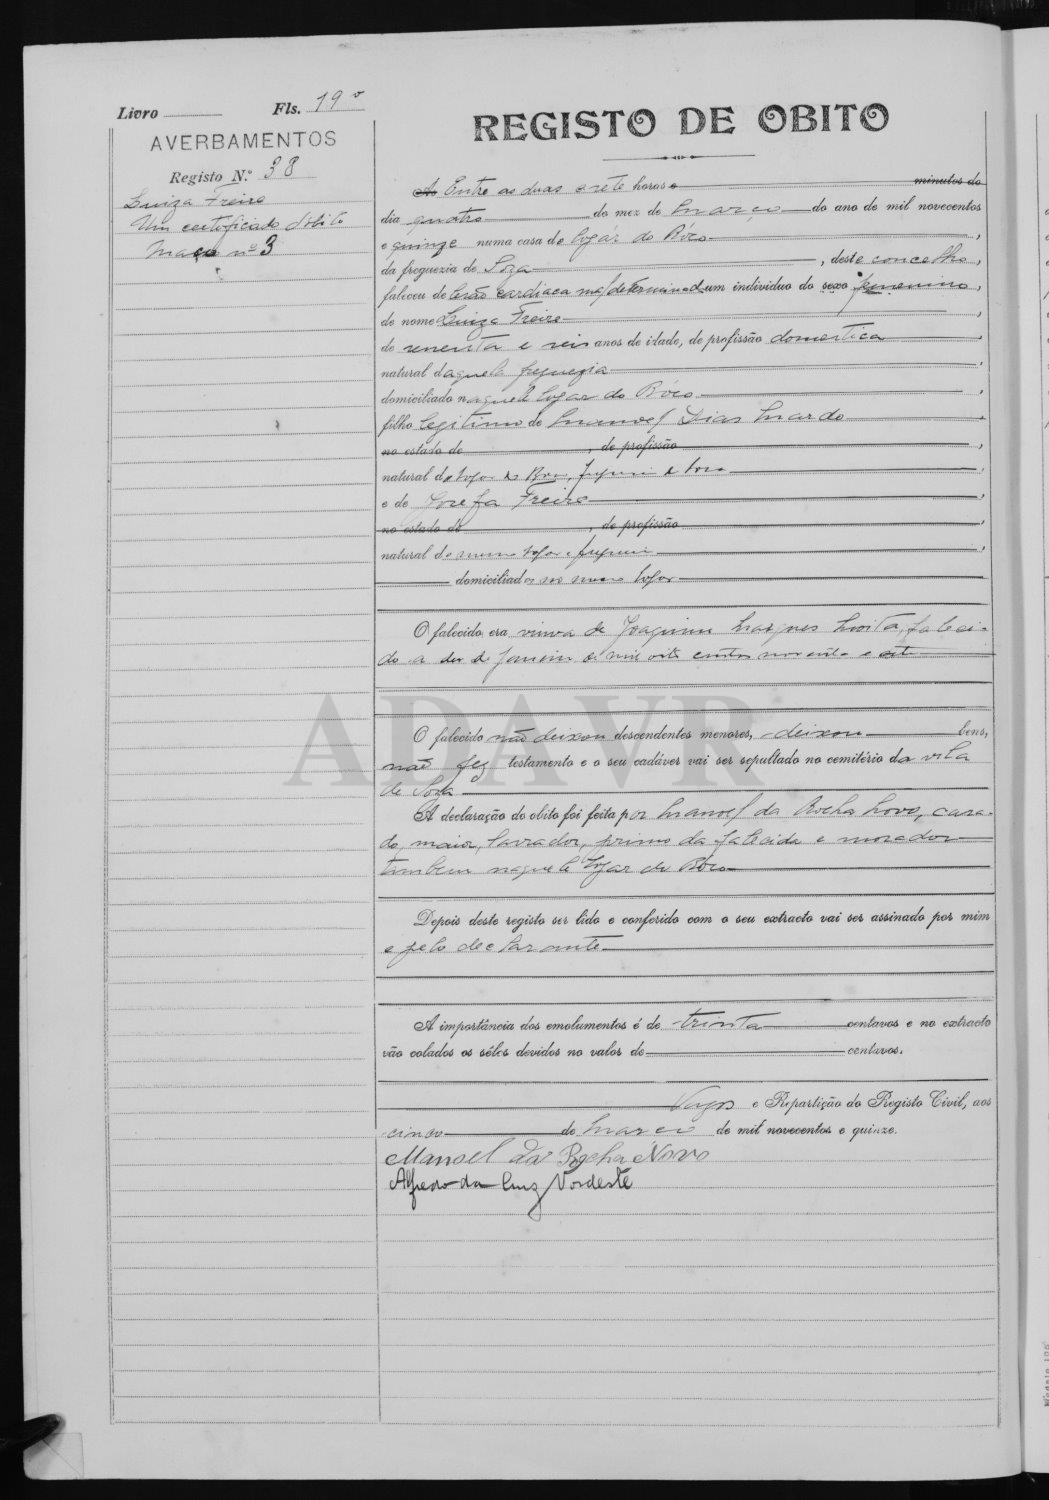 Livro Fls. 19 v
AVERBAMENTOS
Registo N.º 38
Luiza Freire
Um certificado d'obito
Maço nº 3
REGISTO DE OBITO
Às Entre as duas e sete horas e minutos do
dia quatro do mez de Março do ano de mil novecentos
e quinze numa casa do logar do Bôco,
da freguezia de Soza, deste concelho,
faleceu de lesão cardiaca mal determinada um individuo do sexo femenino,
de nome Luiza Freire
de e seis anos de idade, de profissão domestica,
natural daquela freguezia,
domiciliado naquele logar do Bôco,
filho legitimo de Manoel Dias Mardo
no estado de , de profissão ,
natural do logar do Boco, freguesia de Soza,
e de Josefa Freire,
no estado de , de profissão ,
natural do mesmo logar e freguesia,
domiciliados no mesmo logar
O falecido era viuva de Joaquim Marques faleci-
do a de Janeiro de mil oito centos noventa e oito
O falecido não deixou descendentes menores, deixou bens,
não fez testamento e o seu cadáver vai ser sepultado no cemitério da vila
de Soza
A declaração do obito foi feita por Manoel da Rocha Novo, casa-
do, maior, lavrador, primo da falecida e morador
tambem naquele logar do Bôco
Depois deste registo ser lido e conferido com o seu extracto vai ser assinado por mim
e pelo declarante
A importância dos emolumentos é de trinta centavos e no extracto
vão colados os sêlos devidos no valor de centavos.
Vagos e Repartição do Registo Civil, aos
cinco de Março de mil novecentos e quinze.
Manoel da Rocha Novo
Alfredo da Cruz Nordeste
ADAVR